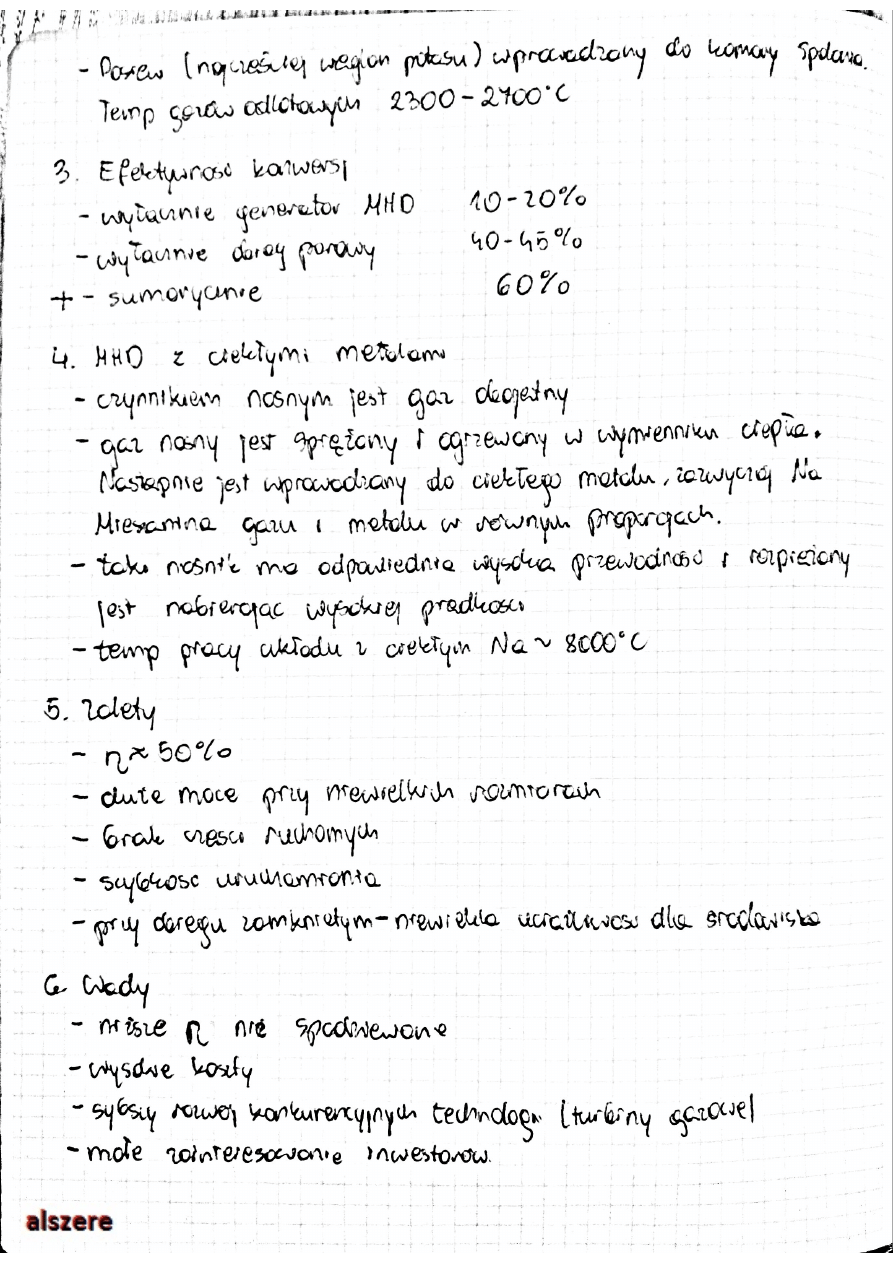 - Posew (najcześciej węglan potasu) wprowadzany do komory spalania.
Temp gazów odlotowych 2300-2700°C
3. Efektywność konwersji
- wyłącznie generator MHD 10-20%
- wyłącznie obieg parowy 40-45%
+ - sumarycznie 60%
4. MHD z ciekłymi metalami
- czynnikiem nośnym jest gaz obojętny
- gaz nośny jest sprężany i ogrzewany w wymienniku ciepła.
Następnie jest wprowadzany do ciekłego metalu, zazwyczaj Na
Mieszanina gazu i metalu w równym proporcjach.
- taki nośnik ma odpowiednia wysoka przewodność i rozprężany
jest nabierając wysokiej prędkości
- temp pracy układu z ciekłym Na ~ 8000°C
5. Zalety
- η≈50%
- duże moce przy niewielkich rozmiarach
- brak części ruchomych
- szybkość uruchamiania
- przy obiegu zamkniętym - niewielka uciążliwość dla środowiska
6 Wady
- niższe η niż spodziewane
- wysokie koszty
- szybszy rozwój konkurencyjnych technologii (turbiny gazowe)
- małe zainteresowanie inwestorów.
alszere